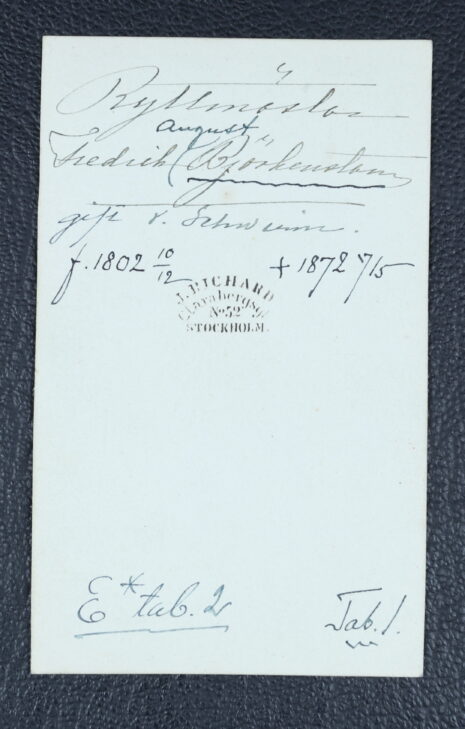 Ryttmästar
august
Fredrik (Björkenstam
gift v. Schwerin.
f. 1802 10/12 + 1872 7/5
J. RICHARD
Clarabergsg.
No 52
STOCKHOLM.
E* tab. 2
Tab. 1.